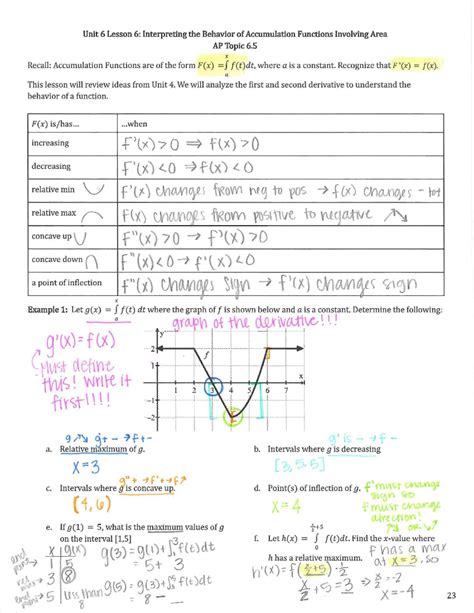 Unit 6 Lesson 6: Interpreting the Behavior of Accumulation Functions Involving Area
AP Topic 6.5
Recall: Accumulation Functions are of the form F(x) = ∫ₐˣ f(t)dt, where a is a constant. Recognize that F'(x) = f(x).
This lesson will review ideas from Unit 4. We will analyze the first and second derivative to understand the
behavior of a function.
F(x) is/has... ...when
increasing F'(x) > 0 ⇒ f(x) > 0
decreasing F'(x) < 0 → f(x) < 0
relative min F'(x) changes from neg to pos → f(x) changes - to +
relative max f(x) changes from positive to negative
concave up F"(x) > 0 → f'(x) > 0
concave down F"(x) < 0 → f'(x) < 0
a point of inflection F"(x) changes sign → f'(x) changes sign
Example 1: Let g(x) = ∫ₐˣ f(t) dt where the graph of f is shown below and a is a constant. Determine the following:
graph of the derivative!!!
g'(x) = f(x)
Must define
this! Write it
first!!!!
y
f
x
2
1
-1
-2
1 2 3 4 5 6 7
g'+ → f + -
g' is - → f -
a. Relative maximum of g.
x = 3
b. Intervals where g is decreasing
[3, 5.5]
g"+ → f'+ → f↗
c. Intervals where g is concave up.
(4, 6)
d. Point(s) of inflection of g.
f' must change
sign so
f must change
direction!
x = 4
e. If g(1) = 5, what is the maximum values of g
on the interval [1,5]
x g(x)
1 5
3 8
5 less than 8
g(3) = g(1) + ∫₁³ f(t) dt
= 5 + 3
g(5) = g(3) + ∫₃⁵ f(t) dt
= 8 -
end
rel
max
end
f. Let h(x) = ∫₀^(x/2+5) f(t)dt. Find the x-value where
h has a relative maximum.
f has a max
at x = 3 so
h'(x) = f(x/2 + 5) · 1/2
x/2 + 5 = 3 → x/2 = -2
x = -4
23